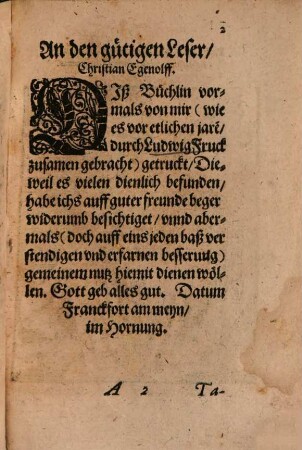 2
An den gütigen Leser/
Christian Egenolff.
DIß Büchlin vor-
mals von mir (wie
es vor etlichen jarē/
durch Ludwig Fruck
zusamen gebracht) getruckt/ Die-
weil es vielen dienlich befunden/
habe ichs auff guter freunde beger
widerumb besichtiget/ vnnd aber-
mals (doch auff eins jeden baß ver
stendigen vnd erfarnen besserung)
gemeinem nutz hiemit dienen wöl-
len. Gott geb alles gut. Datum
Franckfort am meyn/
im Hornung.
A 2 Ta-